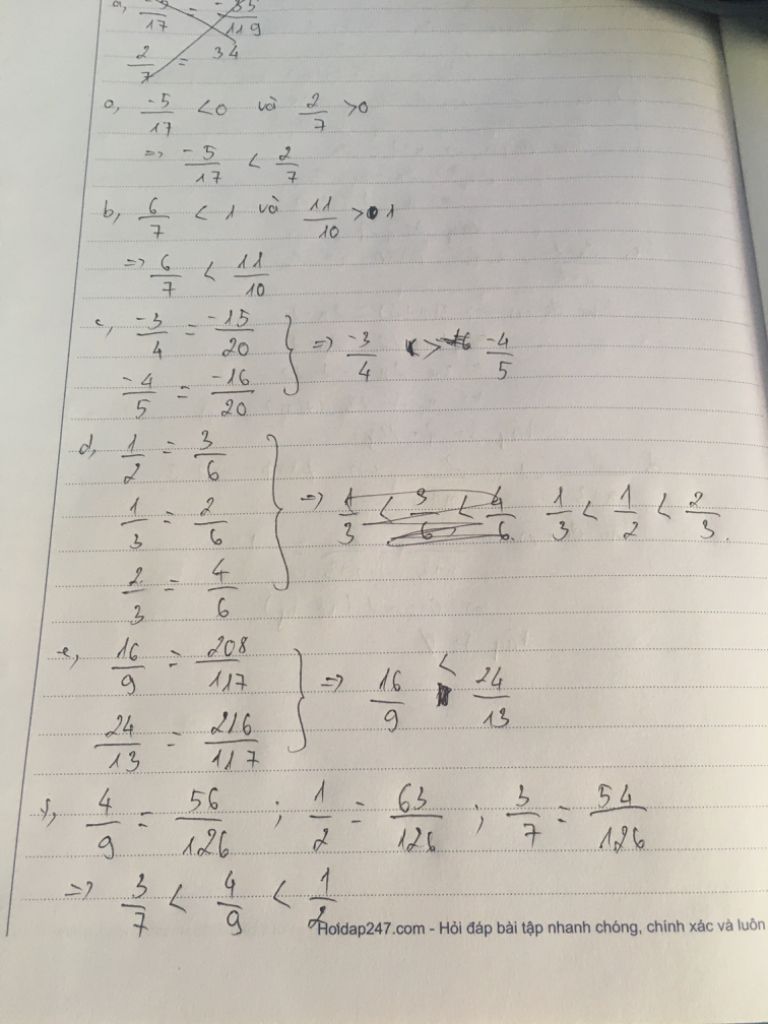 a, -5/17 = -35/119
2/7 = 34
a, -5/17 < 0 và 2/7 > 0
=> -5/17 < 2/7
b, 6/7 < 1 và 11/10 > 1
=> 6/7 < 11/10
c, -3/4 = -15/20
-4/5 = -16/20
} => -3/4 > -4/5
d, 1/2 = 3/6
1/3 = 2/6
2/3 = 4/6
} => 1/3 < 1/2 < 2/3.
e, 16/9 = 208/117
24/13 = 216/117
} => 16/9 < 24/13
f, 4/9 = 56/126 ; 1/2 = 63/126 ; 3/7 = 54/126
=> 3/7 < 4/9 < 1/2
Hoidap247.com - Hỏi đáp bài tập nhanh chóng, chính xác và luôn